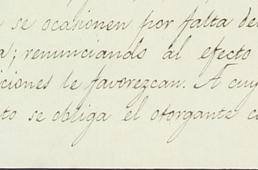 se ocasionen por falta de
; renunciando al efecto
ciones le favorezcan. A cuy
to se obliga el otorgante c